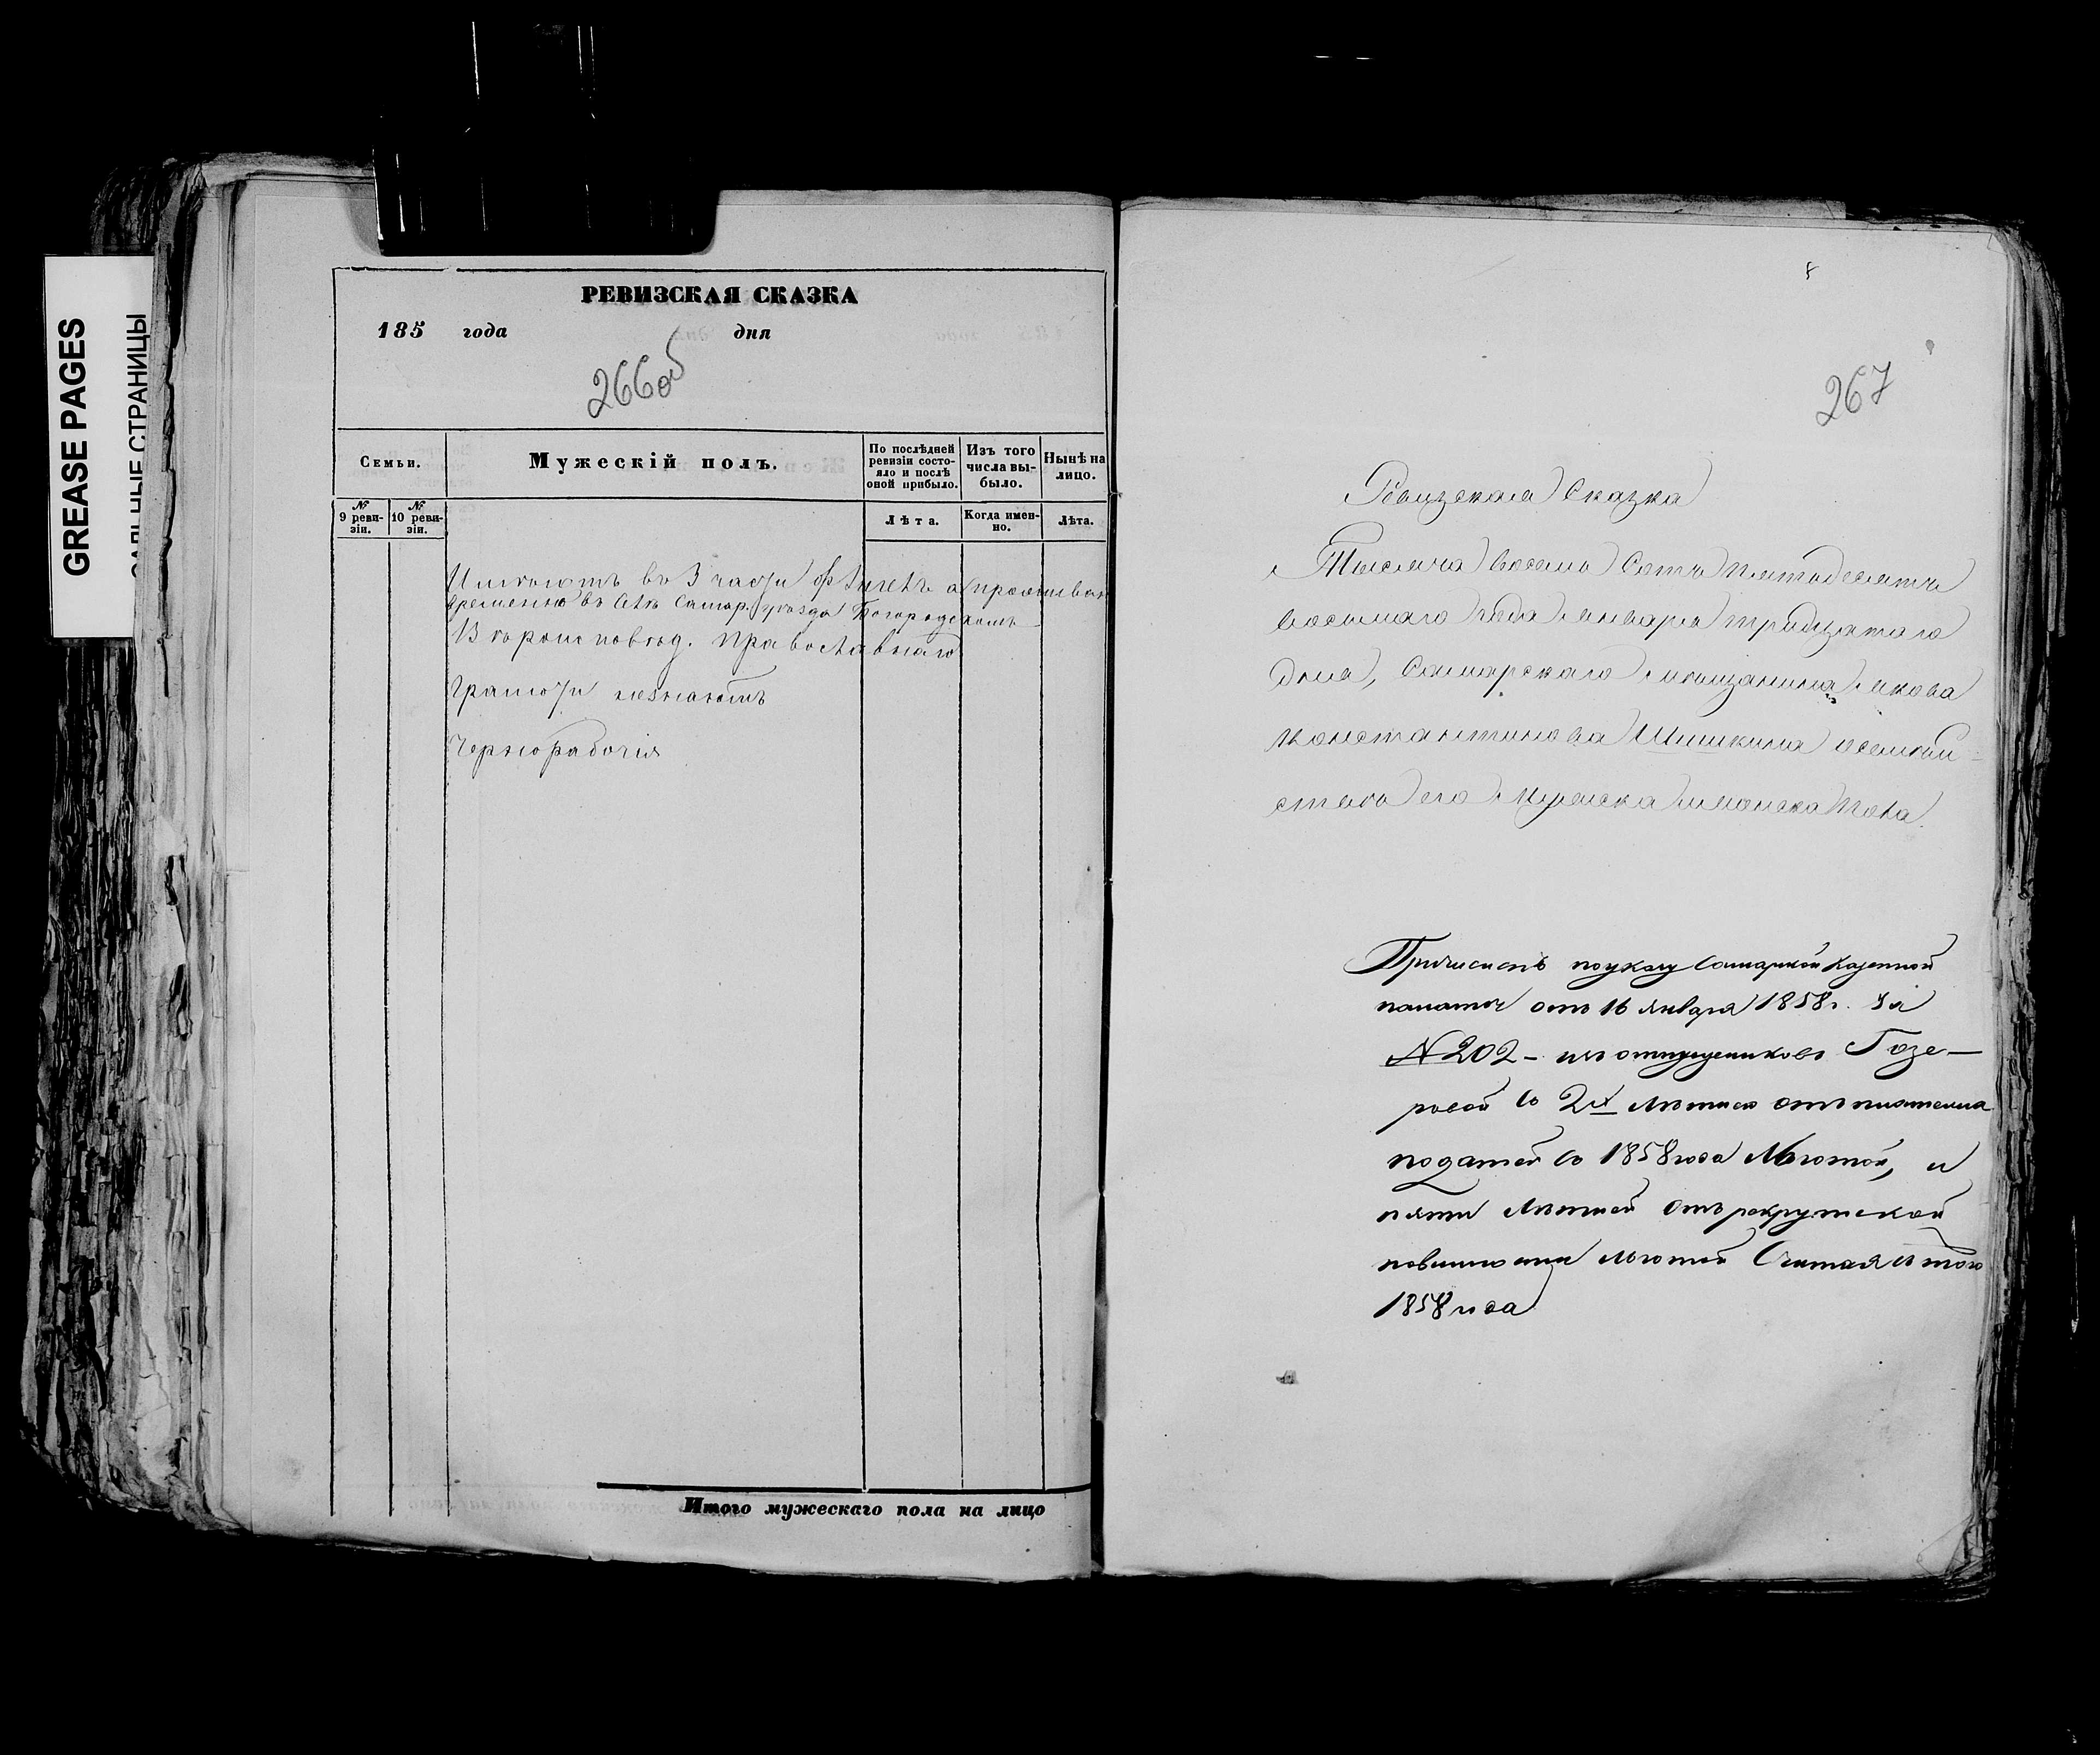 GREASE PAGES
САЛЬНЫЕ СТРАНИЦЫ
РЕВИЗСКАЯ СКАЗКА
185 года дня
266об
Семьи.
Мужескій полъ.
По послѣдней ревизіи состояло и послѣ оной прибыло.
Изъ того числа выбыло.
Нынѣ на лицо.
№ 9 ревизіи.
№ 10 ревизіи.
Лѣта.
Когда именно.
Лѣта.
въ 3 части
временно въ Самар. уѣзда Богородскомъ
Православнаго
Грамоти незнаютъ
Чернорабочія
Итого мужескаго пола на лицо
267
Ревизская Сказка
Тысяча восемь Сотъ пятьдесятъ
восьмаго года января тридцатаго
дня, Самарскаго мещанина Якова
Константинова Шишкина
его Мужеска и женска пола
Причисленъ по указу Самарской Казенной
палаты отъ 16 января 1858 г. за
№ 202 - изъ отпущенниковъ
съ 2х лѣтнею отъ платежа
податей съ 1858 года льготой, и
пяти лѣтней отъ рекрутской
повинности льготой Считая съ того
1858 года